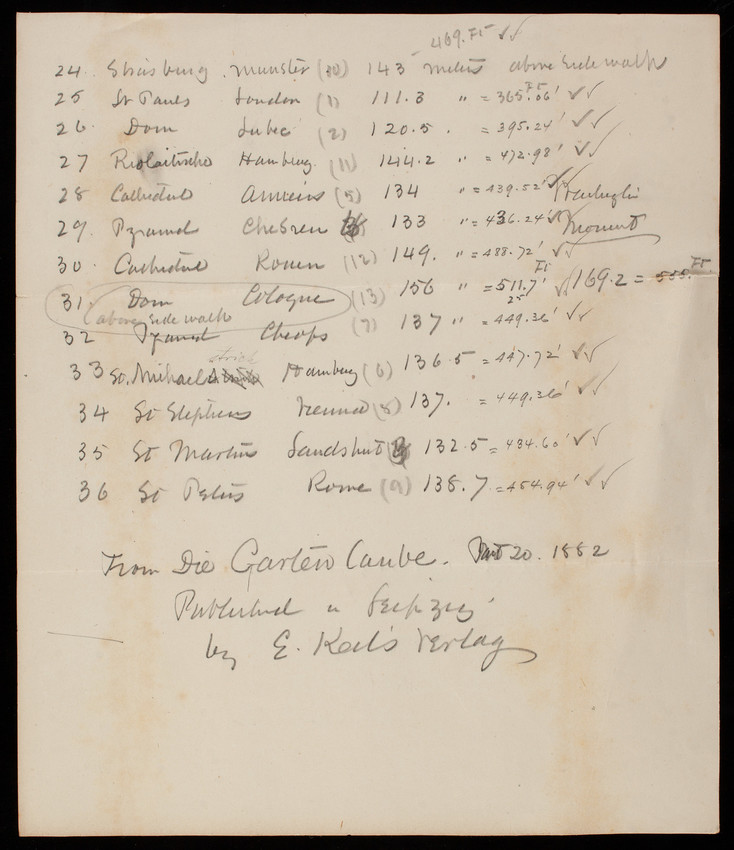 469. Ft ✓✓
24. Strasburg. Munster (10) 143 meters above side walk
25 St Pauls London (1) 111.3 " = 365.06' Ft ✓✓
26. Dom Lubec (2) 120.5. = 395.24' ✓✓
27 Nicolaitische Hamburg. (11) 144.2 " = 472.98' ✓✓
28 Cathedral Amiens (5) 134 " = 439.52' ✓✓ Washington
29. Pyramid Chebren 133 " = 436.24' ✓✓ Monumt
30. Cathedral Rouen (12) 149. " = 488.72' ✓✓
31. Dom Cologne (13) 156 " = 511.7' Ft ✓ 169.2 = 555. Ft.
above side walk 25
32 Pyramid Cheops (7) 137 " = 449.36' ✓✓
33 St. Michaels Hamburg (6) 136.5 = 447.72' ✓✓
34 St Stephens Vienna (8) 137. = 449.36' ✓✓
35 St Martins Landshut 132.5 = 434.60' ✓✓
36 St Peters Rome (9) 138.7 = 454.94' ✓✓
From Die Garten Laube. 20. 1882
Published in Leipzig.
by E. Keil's Verlag